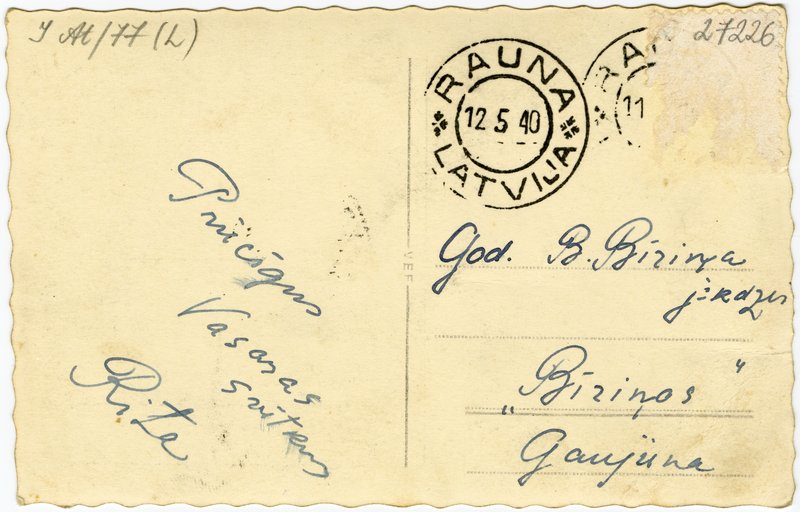 I At/77 (L)
27226
RAUNA
12 5 40
LATVIJA
RA
11
Priecīgus
Vasaras
svētkus
Rita
VEF
God. B. Bīriņa
j-kdze
„Bīriņos"
Gaujiena